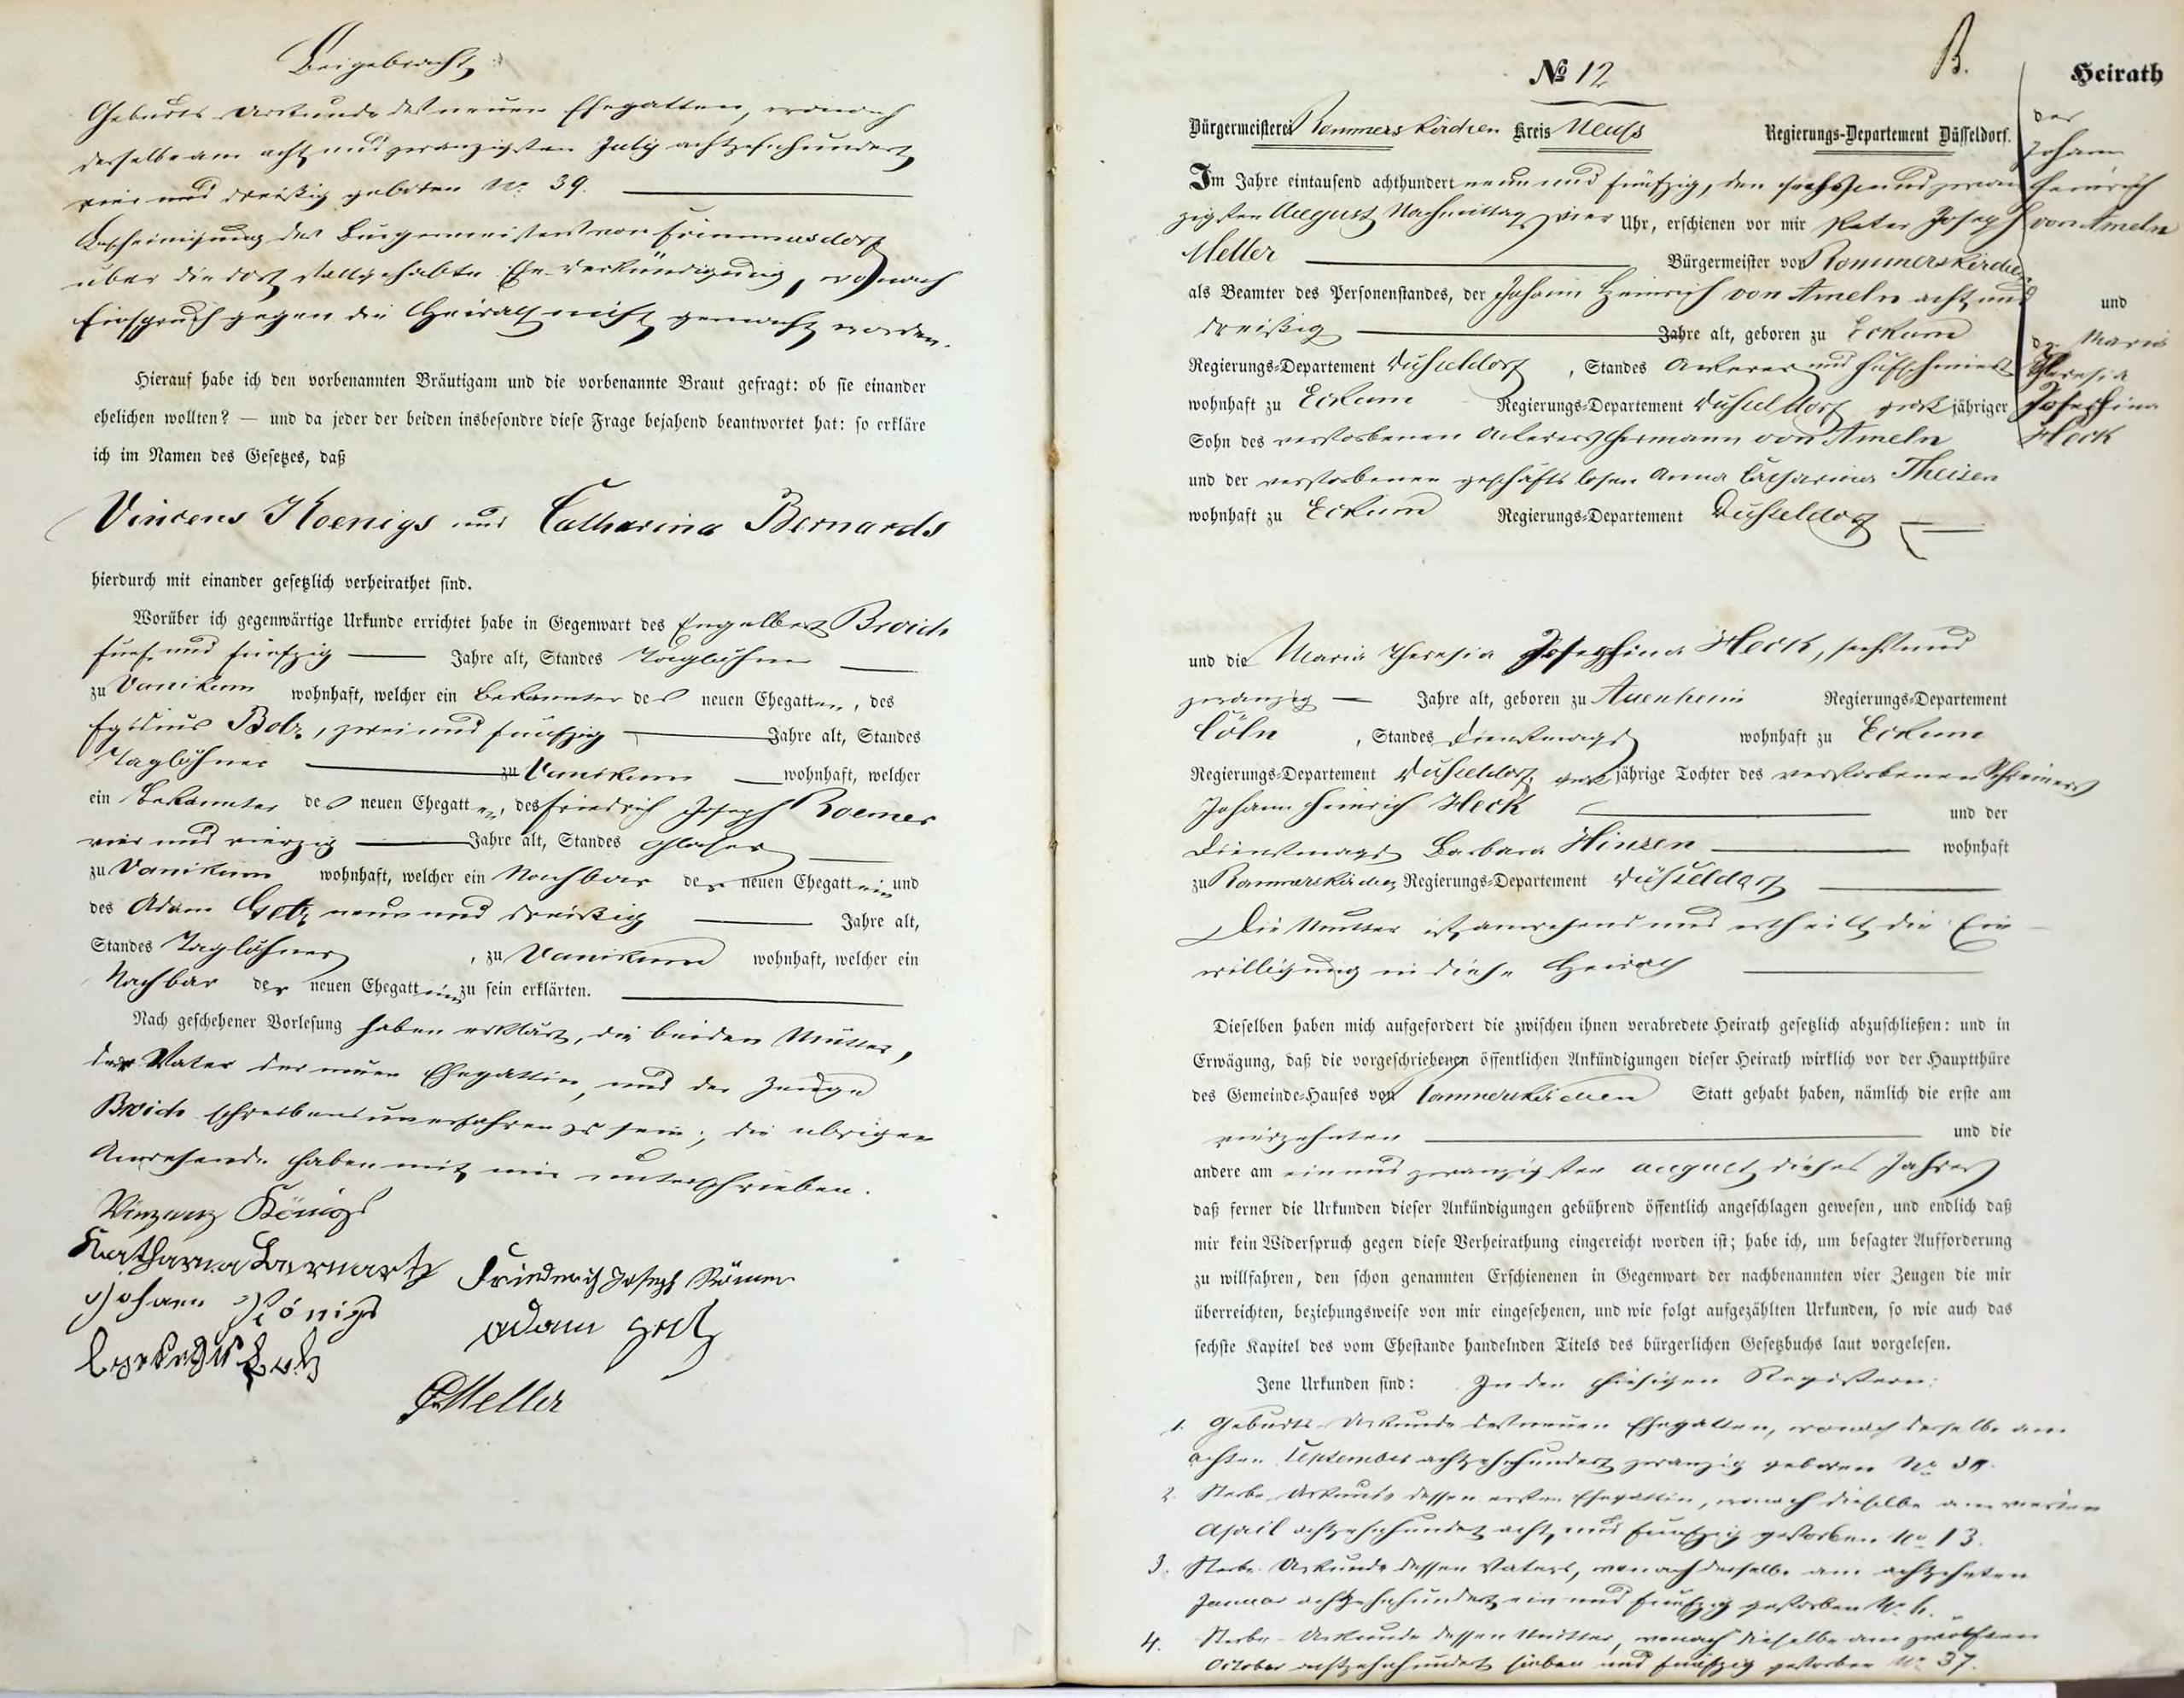 Beigebracht,
Geburts Urkunde des neuen Ehegatten, wonach
derselbe am acht und zwanzigsten July achtzehnhundert
vier und dreißig geboren No. 39.
Bescheinigung des Bürgermeisters von Frimmersdorf
über die dort stattgehabte Ehe-Verkündigung, wonach
Einspruch gegen die Heirath nicht gemacht worden.
Hierauf habe ich den vorbenannten Bräutigam und die vorbenannte Braut gefragt: ob sie einander
ehelichen wollten? — und da jeder der beiden insbesondre diese Frage bejahend beantwortet hat: so erkläre
ich im Namen des Gesetzes, daß
Vincens Koenigs und Catharina Bernards
hierdurch mit einander gesetzlich verheirathet sind.
Worüber ich gegenwärtige Urkunde errichtet habe in Gegenwart des Engelbert Broich
fünf und fünfzig — Jahre alt, Standes Taglöhner
zu Vanikum wohnhaft, welcher ein Bekannter des neuen Ehegatten, des
Egidius Bolz, zwei und fünfzig — Jahre alt, Standes
Taglöhner — zu Vanikum — wohnhaft, welcher
ein Bekannter des neuen Ehegatten, des Friedrich Joseph Roemer
vier und vierzig — Jahre alt, Standes Glaser
zu Vanikum wohnhaft, welcher ein Nachbar der neuen Ehegattin und
des Adam Getz neun und dreißig — Jahre alt,
Standes Taglöhner, zu Vanikum wohnhaft, welcher ein
Nachbar der neuen Ehegattin zu sein erklärten.
Nach geschehener Vorlesung haben erklärt, die beiden Mütter,
der Vater der neuen Ehegattin, und der Zeuge
Broich schreibensunerfahren zu sein; die übrigen
Anwesende haben mit mir unterschrieben.
Vinzenz Königs
Katharina Bernartz
Friederich Joseph Römer
Johann Königs
Adam Getz
Meller
No 12
B.
Heirath
Bürgermeisterei Rommerskirchen Kreis Neuss Regierungs-Departement Düsseldorf.
des
Johann
Heinrich
von Ameln
und
der Maria
Theresia
Josephina
Heck
Im Jahre eintausend achthundert neun und fünfzig, den sechs und zwan
zigsten August Nachmittags vier Uhr, erschienen vor mir Peter Joseph
Meller — Bürgermeister von Rommerskirchen
als Beamter des Personenstandes, der Johann Heinrich von Ameln acht und
dreißig — Jahre alt, geboren zu Eckum
Regierungs-Departement Düsseldorf, Standes Ackerer und Hufschmied
wohnhaft zu Eckum Regierungs-Departement Düsseldorf großjähriger
Sohn des verstorbenen Ackerers Hermann von Ameln
und der verstorbenen geschäftslosen Anna Catharina Theisen
wohnhaft zu Eckum Regierungs-Departement Düsseldorf
und die Maria Theresia Josephina Heck, sechs und
zwanzig — Jahre alt, geboren zu Auenheim Regierungs-Departement
Cöln, Standes Dienstmagd wohnhaft zu Eckum
Regierungs-Departement Düsseldorf, großjährige Tochter des verstorbenen Schreiners
Johann Heinrich Heck — und der
Dienstmagd Barbara Hinzen — wohnhaft
zu Rommerskirchen Regierungs-Departement Düsseldorf
Die Mutter ist anwesend und ertheilt die Ein-
willigung in diese Heirath
Dieselben haben mich aufgefordert die zwischen ihnen verabredete Heirath gesetzlich abzuschließen: und in
Erwägung, daß die vorgeschriebenen öffentlichen Ankündigungen dieser Heirath wirklich vor der Hauptthüre
des Gemeinde-Hauses von Rommerskirchen Statt gehabt haben, nämlich die erste am
vierzehnten — und die
andere am ein und zwanzigsten August dieses Jahres
daß ferner die Urkunden dieser Ankündigungen gebührend öffentlich angeschlagen gewesen, und endlich daß
mir kein Widerspruch gegen diese Verheirathung eingereicht worden ist; habe ich, um besagter Aufforderung
zu willfahren, den schon genannten Erschienenen in Gegenwart der nachbenannten vier Zeugen die mir
überreichten, beziehungsweise von mir eingesehenen, und wie folgt aufgezählten Urkunden, so wie auch das
sechste Kapitel des vom Ehestande handelnden Titels des bürgerlichen Gesetzbuchs laut vorgelesen.
Jene Urkunden sind: In den hiesigen Registern:
1. Geburts-Urkunde des neuen Ehegatten, wonach derselbe am
achten September achtzehnhundert zwanzig geboren No
2. Sterbe-Urkunde dessen ersten Ehegattin, wonach dieselbe am vierten
April achtzehnhundert acht und fünfzig gestorben No 13.
3. Sterbe-Urkunde dessen Vaters, wonach derselbe am achtzehnten
Januar achtzehnhundert ein und fünfzig gestorben No
4. Sterbe-Urkunde dessen Mutter, wonach dieselbe am zwölften
October achtzehnhundert sieben und fünfzig gestorben No 37.